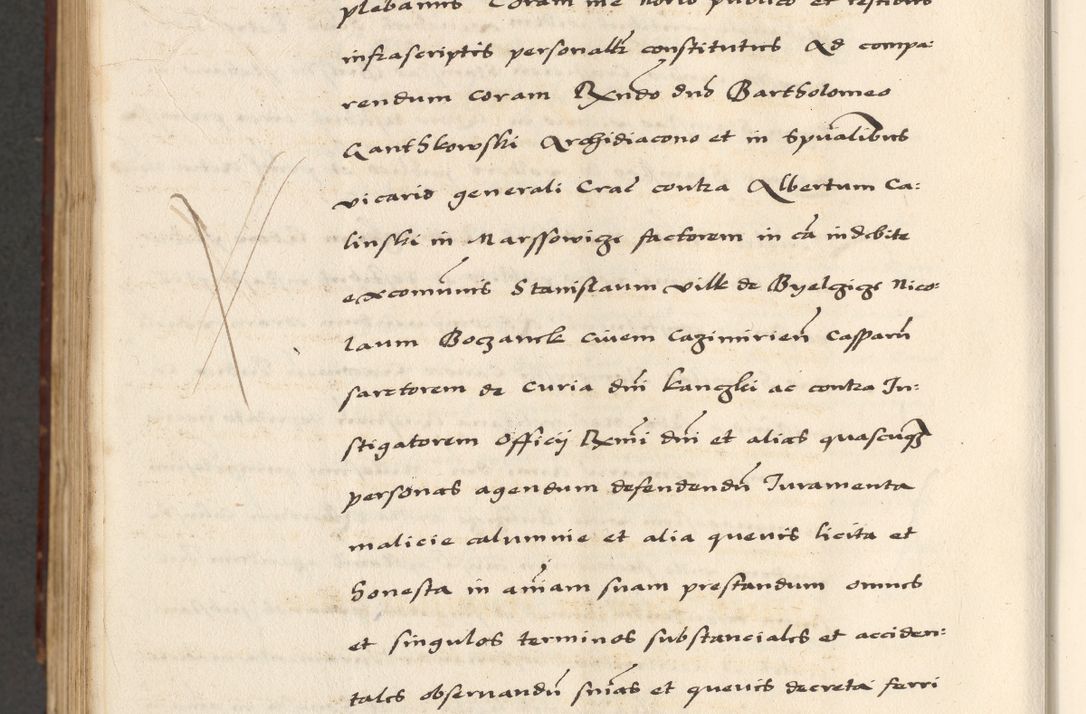 plebanus Coram me notorio publico et testibus
infrascriptis personalr constitutus Ad compa:
rendum coram Rxndo dno Bartholomeo
Ganthkowski Archidiacono et in Spualibus
vicario generali Crac contra Albertum Ca:
linski in Marssowicze factorem in ca indebite
excomunis Stanislaum villk de Byelczicze Nico:
laum Boczanek civem Cazimirien Casparu
sartorem de Curia dni kanczlei ac contra In:
stigatorem Officij Rxmi dni et alias quascuqz
personas agendum defendendu Iuramenta
malicie calumnie et alia quevis licita et
honesta in aniam suam prestandum omnes
et singulos terminos substanciales et acciden:
tales observandu snias et quevis decreta ferri